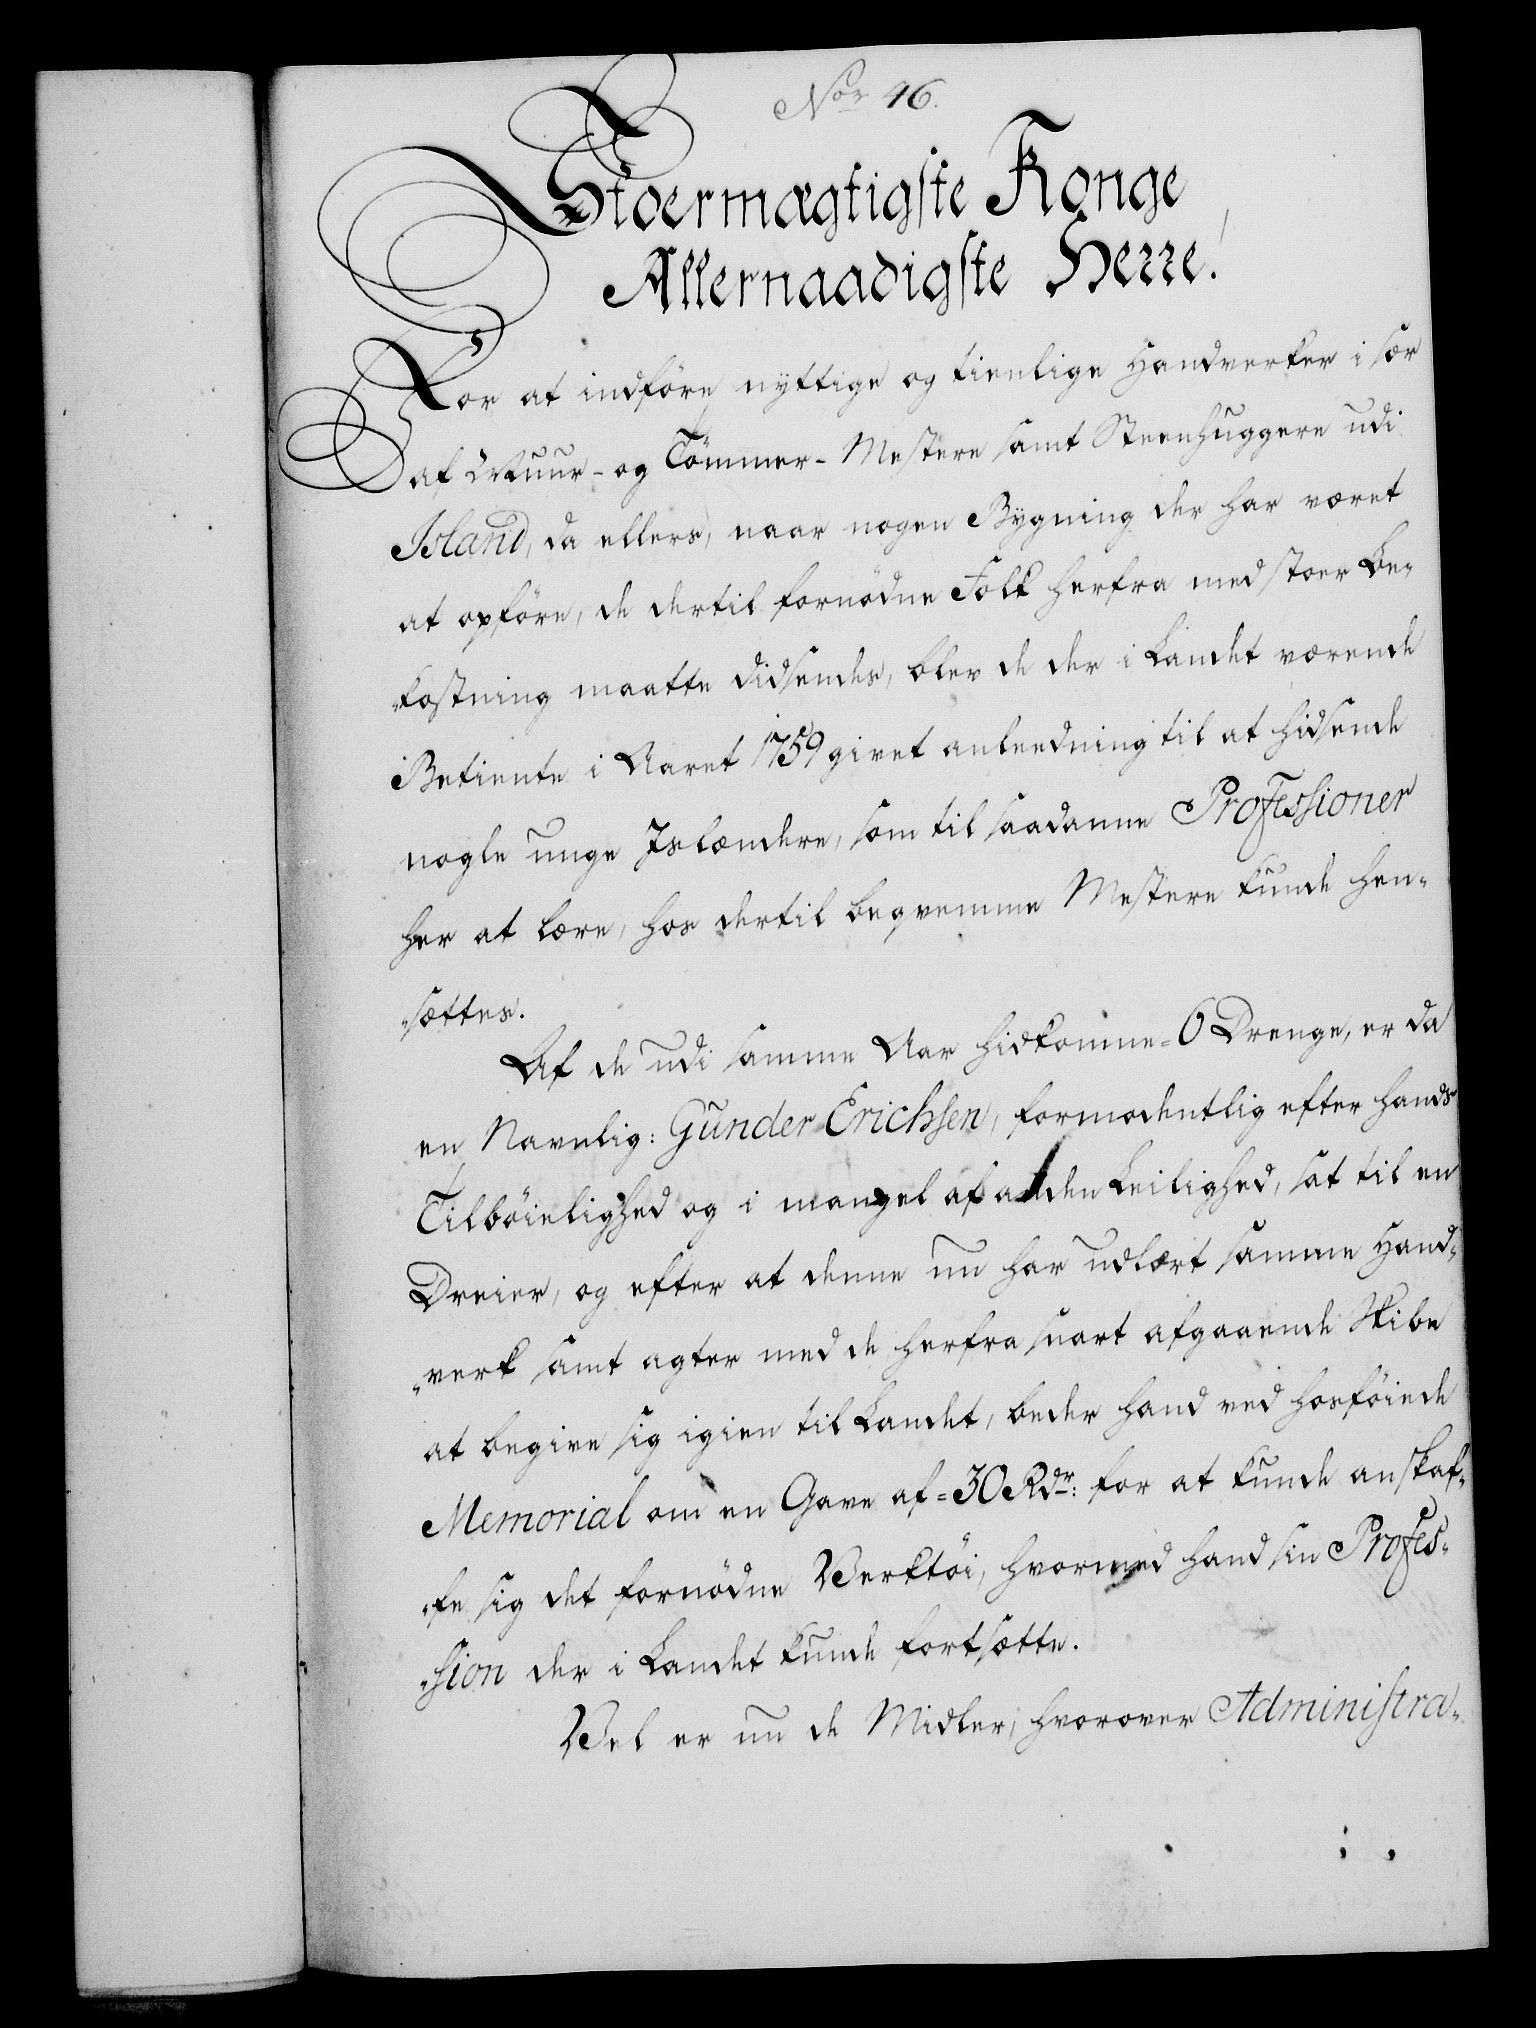 Nor 46.
Stoermægtigste Konge
Allernaadigste Herre!
For at indföre nyttige og tienlige Handverker i sær
af Muur- og Tömmer- Mestere samt Steenhuggere udi
Island, da ellers, naar nogen Bygning der har været
at opföre, de dertil fornödne Folk herfra med stoer be-
-kostning maatte didsendes, blev de der i Landet værende
Betiente i Aaret 1759 givet anleedning til at hidsende
nogle unge Islændere, som til saadanne Professioner
her at lære, hos dertil beqvemme Mestere kunde hen-
-sættes.
Af de udi samme Aar hidkomne = 6 Drenge, er da
en Navnlig: Gunder Erichsen, formodentlig efter hands
Tilböielighed og i mangel af anden Leilighed, sat til en
Dreier, og efter at denne nu har udlært samme Hand-
-verk samt agter med de herfra snart afgaaende Skibe
at begive sig igien til Landet, beder hand ved hosföiede
Memorial om en Gave af = 30 Rdr: for at kunde anskaf-
-fe sig det fornödne Verktöi, hvormed hand sin Profes-
-sion der i Landet kunde fortsætte.
Vel er nu de Midler, hvorover Administra-